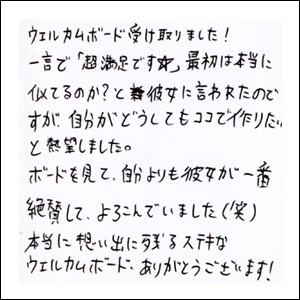 ウェルカムボード受け取りました！
一言で「超満足です☆」最初は本当に
似てるのか？と彼女に言われたので
すが、自分がどうしてもココで作りたい
と熱望しました。
ボードを見て。自分よりも彼女が一番
絶賛して、よろこんでいました（笑）
本当に想い出に残るステキな
ウェルカムボード、ありがとうございます！